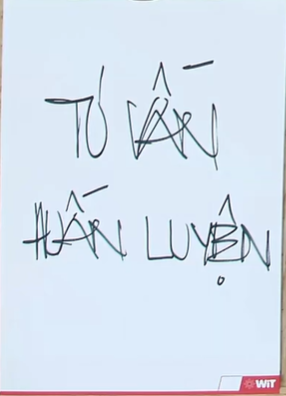 TƯ VẤN
HUẤN LUYỆN
WIT